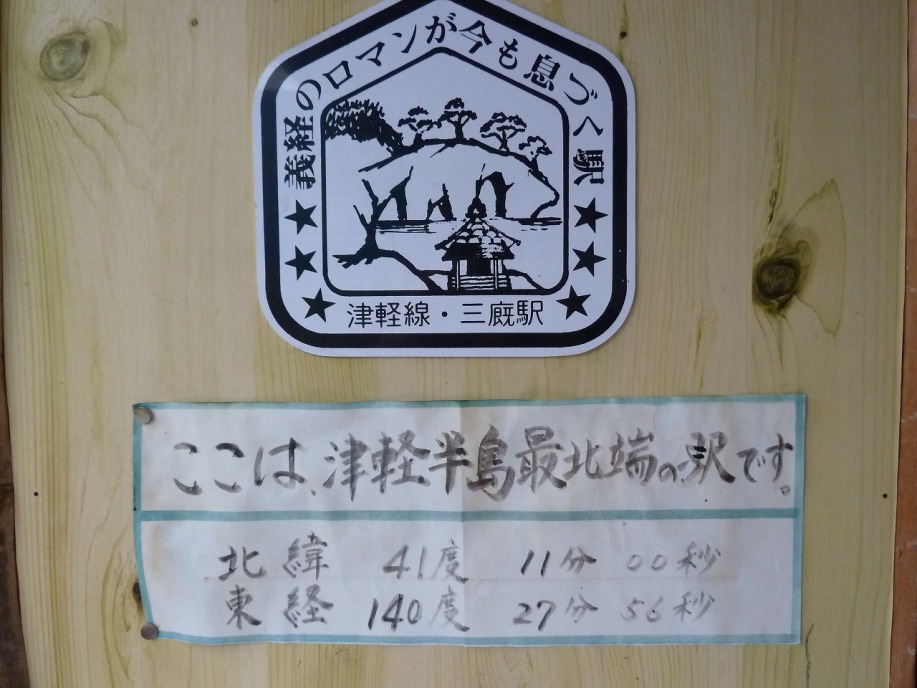 義経のロマンが今も息づく駅
津軽線・三厩駅
ここは、津軽半島最北端の駅です。
北緯 41度 11分 00秒
東経 140度 27分 56秒